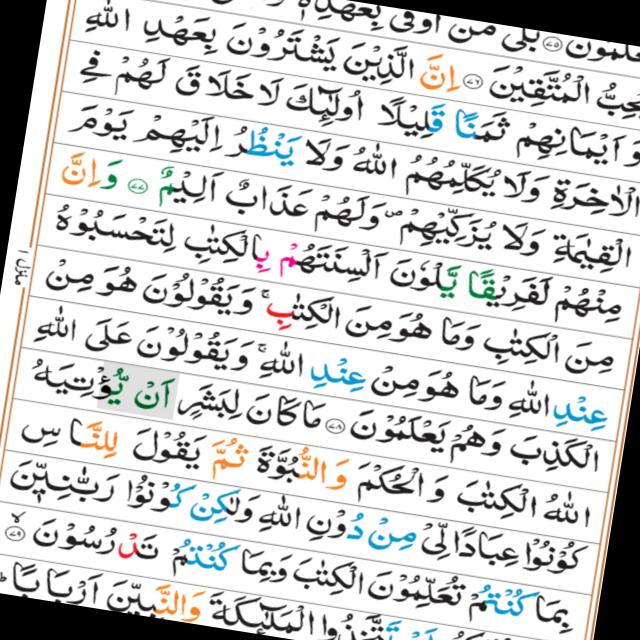 بَلٰى مَنْ اَوْفٰى بِعَهْدِهٖ
يُحِبُّ الْمُتَّقِيْنَ ۝۷۶ اِنَّ الَّذِيْنَ يَشْتَرُوْنَ بِعَهْدِ اللّٰهِ
وَ اَيْمَانِهِمْ ثَمَنًا قَلِيْلًا اُولٰٓئِكَ لَا خَلَاقَ لَهُمْ فِي
الْاٰخِرَةِ وَلَا يُكَلِّمُهُمُ اللّٰهُ وَلَا يَنْظُرُ اِلَيْهِمْ يَوْمَ
الْقِيٰمَةِ وَلَا يُزَكِّيْهِمْ ۪ وَلَهُمْ عَذَابٌ اَلِيْمٌ ۝۷۷ وَ اِنَّ
مِنْهُمْ لَفَرِيْقًا يَّلْوٗنَ اَلْسِنَتَهُمْ بِالْكِتٰبِ لِتَحْسَبُوْهُ
مِنَ الْكِتٰبِ وَمَا هُوَ مِنَ الْكِتٰبِ ۚ وَيَقُوْلُوْنَ هُوَ مِنْ
عِنْدِ اللّٰهِ وَمَا هُوَ مِنْ عِنْدِ اللّٰهِ ۚ وَيَقُوْلُوْنَ عَلَى اللّٰهِ
الْكَذِبَ وَهُمْ يَعْلَمُوْنَ ۝۷۸ مَا كَانَ لِبَشَرٍ اَنْ يُّؤْتِيَهُ
اللّٰهُ الْكِتٰبَ وَ الْحُكْمَ وَ النُّبُوَّةَ ثُمَّ يَقُوْلَ لِلنَّاسِ
كُوْنُوْا عِبَادًا لِّيْ مِنْ دُوْنِ اللّٰهِ وَلٰكِنْ كُوْنُوْا رَبّٰنِيّٖنَ
بِمَا كُنْتُمْ تُعَلِّمُوْنَ الْكِتٰبَ وَبِمَا كُنْتُمْ تَدْرُسُوْنَ ۝۷۹
تَتَّخِذُوا الْمَلٰٓئِكَةَ وَالنَّبِيّٖنَ اَرْبَابًا